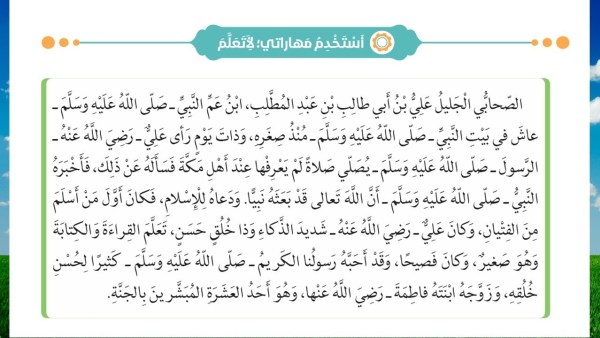 أَسْتَخْدِمُ مَهاراتي؛ لِأَتَعَلَّمَ
الصّحابيُّ الْجَليلُ عَلِيُّ بْنُ أَبي طالِبِ بْنِ عَبْدِ الْمُطَّلِبِ، ابْنُ عَمِّ النَّبِيِّ ـ صَلّى اللّهُ عَلَيْهِ وَسَلَّمَ ـ
عاشَ في بَيْتِ النَّبِيِّ ـ صَلّى اللّهُ عَلَيْهِ وَسَلَّمَ ـ مُنْذُ صِغَرِهِ، وَذاتَ يَوْمٍ رَأى عَلِيٌّ ـ رَضِيَ اللّهُ عَنْهُ ـ
الرَّسولَ ـ صَلّى اللّهُ عَلَيْهِ وَسَلَّمَ ـ يُصَلّي صَلاةً لَمْ يَعْرِفْها عِنْدَ أَهْلِ مَكَّةَ فَسَأَلَهُ عَنْ ذَلِكَ، فَأَخْبَرَهُ
النَّبِيُّ ـ صَلّى اللّهُ عَلَيْهِ وَسَلَّمَ ـ أَنَّ اللّهَ تَعالى قَدْ بَعَثَهُ نَبِيًّا. وَدَعاهُ لِلْإِسْلامِ، فَكانَ أَوَّلَ مَنْ أَسْلَمَ
مِنَ الفِتْيانِ، وَكانَ عَلِيٌّ ـ رَضِيَ اللّهُ عَنْهُ ـ شَديدَ الذَّكاءِ وَذا خُلُقٍ حَسَنٍ، تَعَلَّمَ القِراءَةَ وَالكِتابَةَ
وَهُوَ صَغيرٌ، وَكانَ فَصيحًا، وَقَدْ أَحَبَّهُ رَسولُنا الكَريمُ ـ صَلّى اللّهُ عَلَيْهِ وَسَلَّمَ ـ كَثيرًا لِحُسْنِ
خُلُقِهِ، وَزَوَّجَهُ ابْنَتَهُ فاطِمَةَ ـ رَضِيَ اللّهُ عَنْها، وَهُوَ أَحَدُ العَشَرَةِ المُبَشَّرينَ بِالجَنَّةِ.